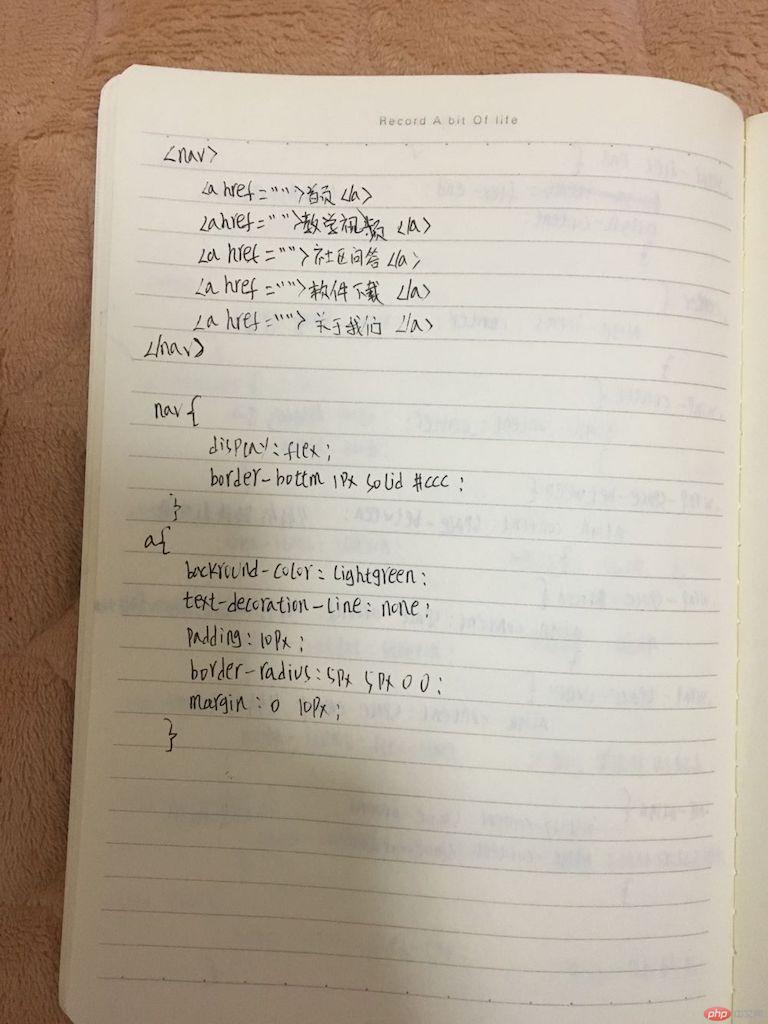 Record A bit Of life
<nav>
<a href="">首页</a>
<a href="">教学视频</a>
<a href="">社区问答</a>
<a href="">软件下载</a>
<a href="">关于我们</a>
</nav>
nav{
display:flex;
border-bottm 1px solid #ccc;
}
a{
backround-color:lightgreen;
text-decoration-line:none;
padding:10px;
border-radius:5px 5px 0 0;
margin:0 10px;
}
php